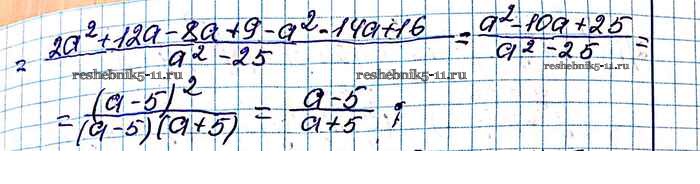 = (2a² + 12a - 8a + 9 - a² - 14a + 16)/(a² - 25) = (a² - 10a + 25)/(a² - 25) =
reshebnik5-11.ru reshebnik5-11.ru
= (a-5)²/((a-5)(a+5)) = (a-5)/(a+5) ;